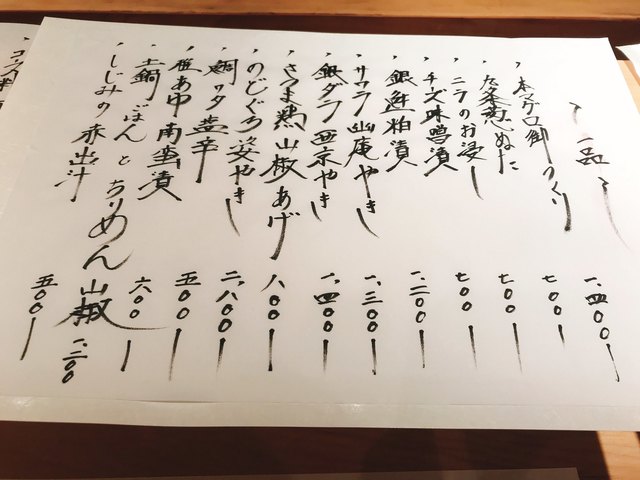 〜一品〜
、本マグロ御つくり 一、四〇〇
、九条葱ぬた 七〇〇
、ニラのお浸し 七〇〇
、チーズ味噌漬 七〇〇
、銀鮭粕漬 一、二〇〇
、サワラ幽庵やき 一、三〇〇
、銀ダラ西京やき 一、四〇〇
、さつま鶏山椒あげ 八〇〇
、のどぐろ姿やき 二、八〇〇
、鯛ワタ塩辛 五〇〇
、稚あゆ南蛮漬 六〇〇
、土鍋ごはんとちりめん山椒 一、二〇〇
、しじみの赤出汁 五〇〇